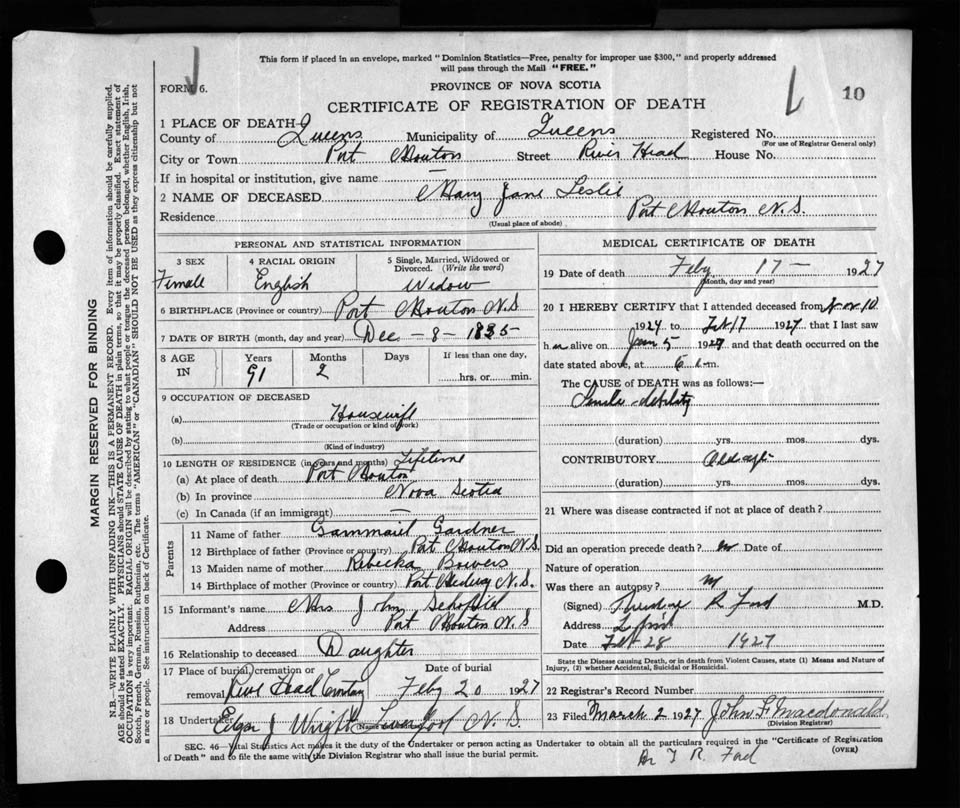 This form if placed in an envelope, marked "Dominion Statistics—Free, penalty for improper use $300," and properly addressed
will pass through the Mail "FREE."
FORM 6.
PROVINCE OF NOVA SCOTIA
10
CERTIFICATE OF REGISTRATION OF DEATH
1 PLACE OF DEATH—
County of Queens Municipality of Queens Registered No.
(For use of Registrar General only)
City or Town Port Mouton Street River Head House No.
If in hospital or institution, give name —
2 NAME OF DECEASED Mary Jane Leslie
Residence Port Mouton N.S.
(Usual place of abode)
PERSONAL AND STATISTICAL INFORMATION
3 SEX
Female
4 RACIAL ORIGIN
English
5 Single, Married, Widowed or
Divorced. (Write the word)
Widow
6 BIRTHPLACE (Province or country) Port Mouton N.S
7 DATE OF BIRTH (month, day and year) Dec - 8 - 1835 -
8 AGE
IN
Years
91
Months
2
Days
If less than one day,
hrs. or min.
9 OCCUPATION OF DECEASED
(a) Housewife
(Trade or occupation or kind of work)
(b)
(Kind of industry)
10 LENGTH OF RESIDENCE (in years and months) Lifetime
(a) At place of death Port Mouton
(b) In province Nova Scotia
(c) In Canada (if an immigrant) —
Parents
11 Name of father Gardner
12 Birthplace of father (Province or country) Port Mouton N.S.
13 Maiden name of mother Rebecka Bowers
14 Birthplace of mother (Province or country) Port Medway N.S.
15 Informant's name Mrs John
Address Port Mouton N.S
16 Relationship to deceased Daughter
17 Place of burial, cremation or
removal
Date of burial
Feby 20 1927
18 Undertaker Edgar J Wright Liverpool N.S.
MEDICAL CERTIFICATE OF DEATH
19 Date of death Feby 17 - 1927
(Month, day and year)
20 I HEREBY CERTIFY that I attended deceased from Nov. 10
1924 to Feb 17 1927 that I last saw
h alive on Jan 5 1927 and that death occurred on the
date stated above, at 6 m.
The CAUSE of DEATH was as follows:—
Senile debility
(duration) yrs. mos. dys.
CONTRIBUTORY
(duration) yrs. mos. dys.
21 Where was disease contracted if not at place of death?
Did an operation precede death? no Date of
Nature of operation
Was there an autopsy?
(Signed) Theodore R Ford M.D.
Address
Date Feb 28 1927
State the Disease causing Death, or in death from Violent Causes, state (1) Means and Nature of
Injury, (2) whether Accidental, Suicidal or Homicidal.
22 Registrar's Record Number
23 Filed March 2 1927 John F Macdonald
(Division Registrar)
SEC. 46—Vital Statistics Act makes it the duty of the Undertaker or person acting as Undertaker to obtain all the particulars required in the "Certificate of Registration
of Death" and to file the same with the Division Registrar who shall issue the burial permit.
(OVER)
Dr T. R. Ford
MARGIN RESERVED FOR BINDING
N.B.—WRITE PLAINLY WITH UNFADING INK—THIS IS A PERMANENT RECORD. Every item of information should be carefully supplied.
AGE should be stated EXACTLY. PHYSICIANS should STATE CAUSE OF DEATH in plain terms, so that it may be properly classified. Exact statement of
OCCUPATION is very important. RACIAL ORIGIN will be described by stating to what people or tongue the deceased person belonged, whether English, Irish,
Scotch, French, German, Russian, Ruthenian, etc. The terms "AMERICAN" or "CANADIAN" SHOULD NOT BE USED as they express citizenship but not
a race or people. See instructions on back of Certificate.